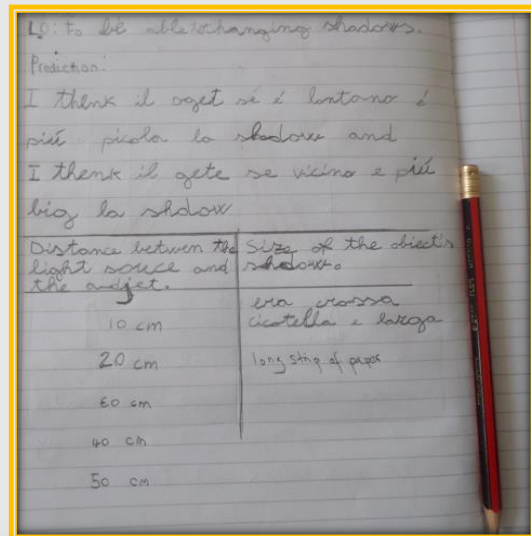 LO: To be able changing shadows.
Prediction:
I thenk il oget sé è lontano è
piú picola la shadow and
I thenk il gete se vicino e piú
big la shdow
Distance betwen the light souce and the adjet.
Size of the obiect's shadow.
10 cm
era crossa
cicotella e larga
20 cm
long strip of paper
40 cm
50 cm